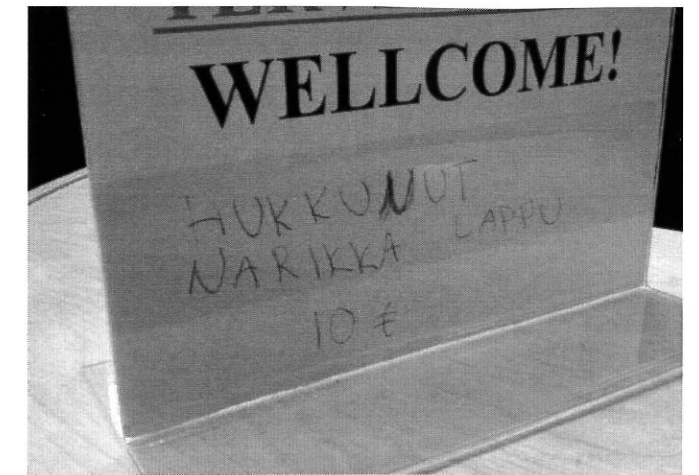 WELLCOME!
HUKKUNUT
NARIKKA LAPPU
10 €